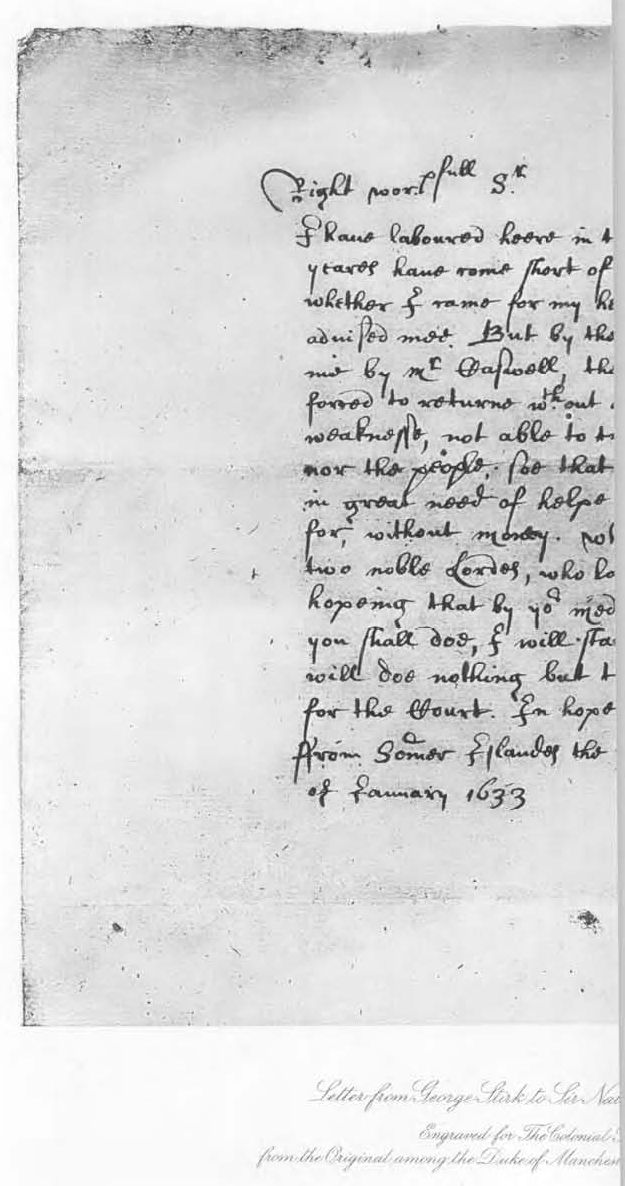 Right wor:pfull Sr.
I haue laboured heere in t
yeares haue come short of
whether I came for my he
aduised mee. But by the
me by mr Caswell, tha
forced to returne wth.out
weaknesse, not able to tr
nor the people, soe that
in great need of helpe
for, without money.
two noble Lordes, who lo
hopeing that by yor med
you shall doe, I will sta
will doe nothing but t
for the Court. In hope
ffrom Somer Islandes the
of January 1633
Letter from George Stirk to Sir Nat
Engraved for The Colonial
from the Original among the Duke of Manches